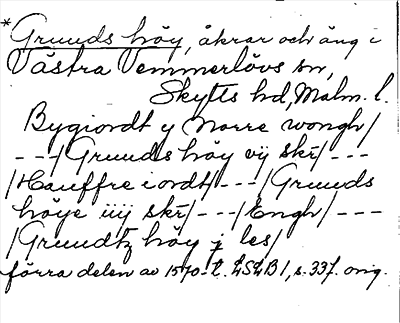 *Gruuds höy, åkrar och äng i
Västra Vemmerlövs sn,
Skytts hd, Malm. l.
Bygiordt y Norre wongh/
---/Gruuds höy vij skr/---
/Hauffre iordt/---/Gruuds
höye iiij skr/---/Engh/---
/Gruudtz höy j les/
förra delen av 1570-t. LSLB 1, s. 337. orig.